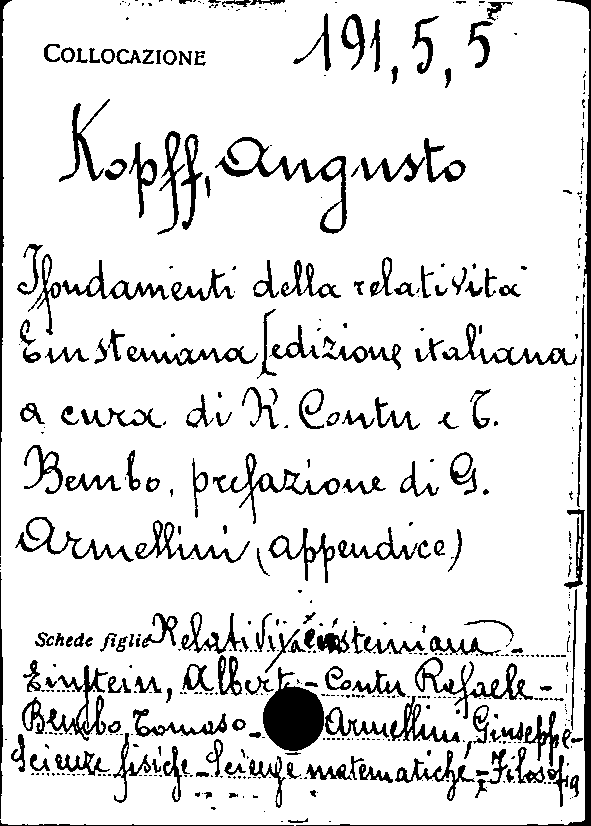 COLLOCAZIONE 191, 5, 5
Kopff, Augusto
I fondamenti della relatività
Einsteniana [edizione italiana
a cura di R. Contu e T.
Bembo, prefazione di G.
Armellini (appendice)
Schede figlie Relatività einsteiniana -
Einstein, Albert - Contu, Rafaele -
Bembo, Tomaso - Armellini, Giuseppe -
Scienze fisiche - Scienze matematiche - Filosofia